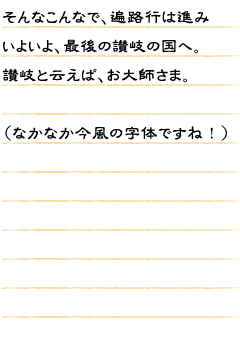 そんなこんなで、遍路行は進み
いよいよ、最後の讃岐の国へ。
讃岐と云えば、お大師さま。
（なかなか今風の字体ですね！）